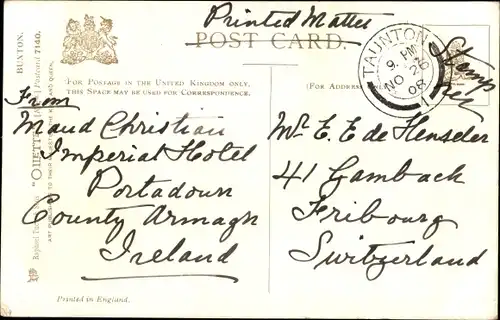 Printed Matter
POST CARD.
BUXTON.
Postcard 7140.
FOR POSTAGE IN THE UNITED KINGDOM ONLY,
THIS SPACE MAY BE USED FOR CORRESPONDENCE.
(FOR ADDRESS
TAUNTON
9. PM
NO 26
08
1
Stamp
From
Maud Christian
Imperial Hotel
Portadown
County Armagh
Ireland
Mr. E. E de Henseler
41 Gambach
Fribourg
Switzerland
"OILETTE"
Printed in England.